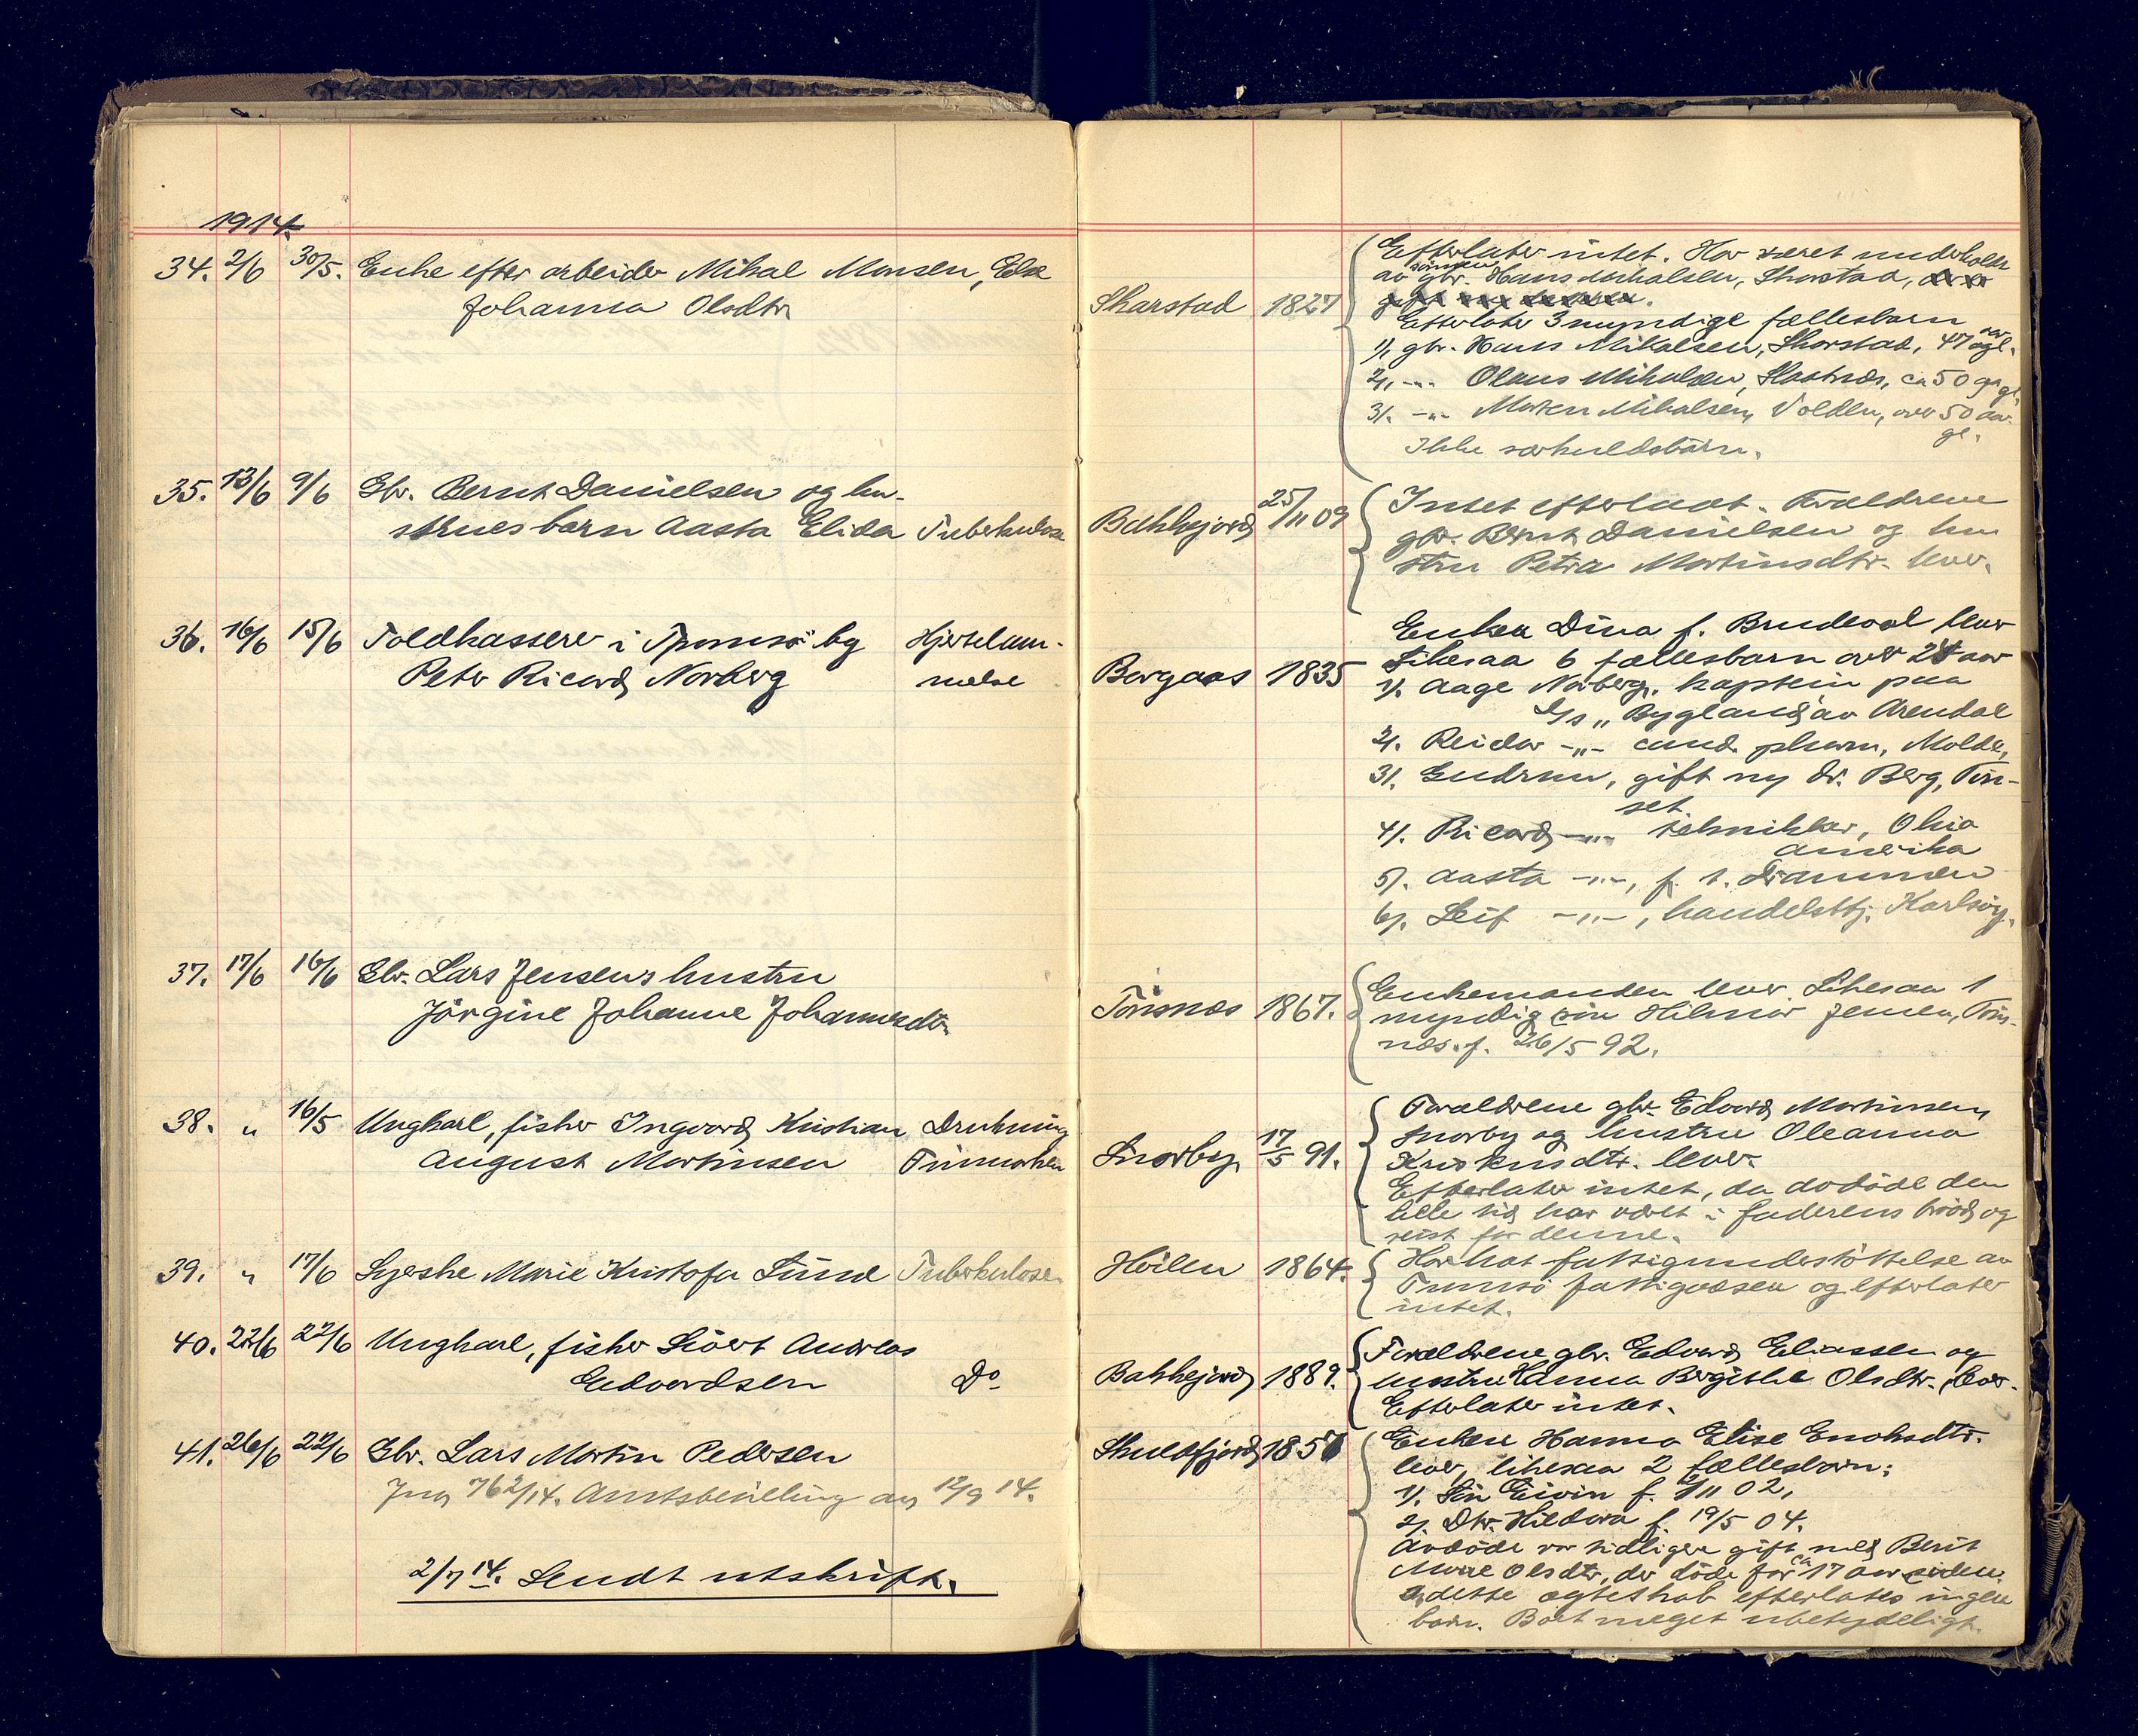 1914.
34. 2/6 30/5. Enke efter arbeider Mikal Monsen, Else
Johanna Olsdtr.
Skarstad 1827
Efterlater intet. Har været underholdt
av sönnen gbr. Hans Mikalsen, Skarstad,
Efterlater 3 myndige fællesbarn
1). gbr. Hans Mikalsen, Skarstad, 47 aar gl.
2). -"- Olaus Mikalsen, ca 50 aar gl.
3). -"- Morten Mikalsen, Volden, over 50 aar gl.
Ikke særkuldsbarn.
35. 13/6 9/6 Gbr. Bernt Danielsen og hu-
strues barn Aasta Elida Tuberkulose
Bakkejord 25/11 09
Intet efterladt. Forældrene
gbr. Bernt Danielsen og hu
stru Petra Martinsdtr. lever.
36. 16/6 15/6 Toldkasserer i Tromsö by Hjertelam-
Peter Ricard Norberg melse
Borgaas 1835
Enken Dina f. Brudevol lever
Likesaa 6 fællesbarn over 21 aar
1). Aage Norberg, kaptein paa
D/s "Bygland" av Arendal
2). Reidar -"- cand. pharm, Molde,
3). Gudrun, gift m. dr. Berg, Tön-
set
4). Ricard -"- tekniker, Ohio
Amerika
5). Aasta -"-, f. t. Drammen
6). Leif -"-, handelsbtj. Karlsöy.
37. 17/6 16/6 Gbr. Lars Jensens hustru
Jörgine Johanne Johannesdtr.
Tönsnes 1867.
Enkemanden lever. Likesaa 1
myndig sön Hilmar Jensen, Töns-
næs. f. 26/5 92.
38. " 16/5 Ungkarl, fisker Ingvard Kristian Drukning
August Martinsen Finmarken
Snorby 17/5 91.
Forældrene gbr. Edvard Martinsen,
Snorby og hustru Oleanna
Kristensdtr. lever.
Efterlater intet, da avdöde den
hele tid har været i faderens bröd og
reist for denne.
39. " 17/6 Syerske Marie Kristofa Lund Tuberkulose
Höilen 1864.
Har hat fattigunderstöttelse av
Tromsö fattigvæsen og efterlater
intet.
40. 22/6 22/6 Ungkarl, fisker Sivert Andreas
Edvardsen Do
Bakkejord 1889.
Forældrene gbr. Edvard Eliassen og
hustru Hanna Bergithe Olsdtr., lever.
Efterlater intet.
41. 26/6 22/6 Gbr. Lars Martin Pedersen
762/14. Amtsbevilling av 12/9 14.
Skulsfjord 1857
Enken Hanna Elise Enoksdtr.
lever, likesaa 2 fællesbarn:
1). Sön Eivin f. /11 02.
2). Dtr. Hildora f. 19/5 04.
Avdöde var tidligere gift med Berit
Marie Olsdtr., der döde for ca 17 aar siden.
I dette egteskab efterlates ingen
barn. Boet meget ubetydeligt.
2/7 14. Sendt utskrift.